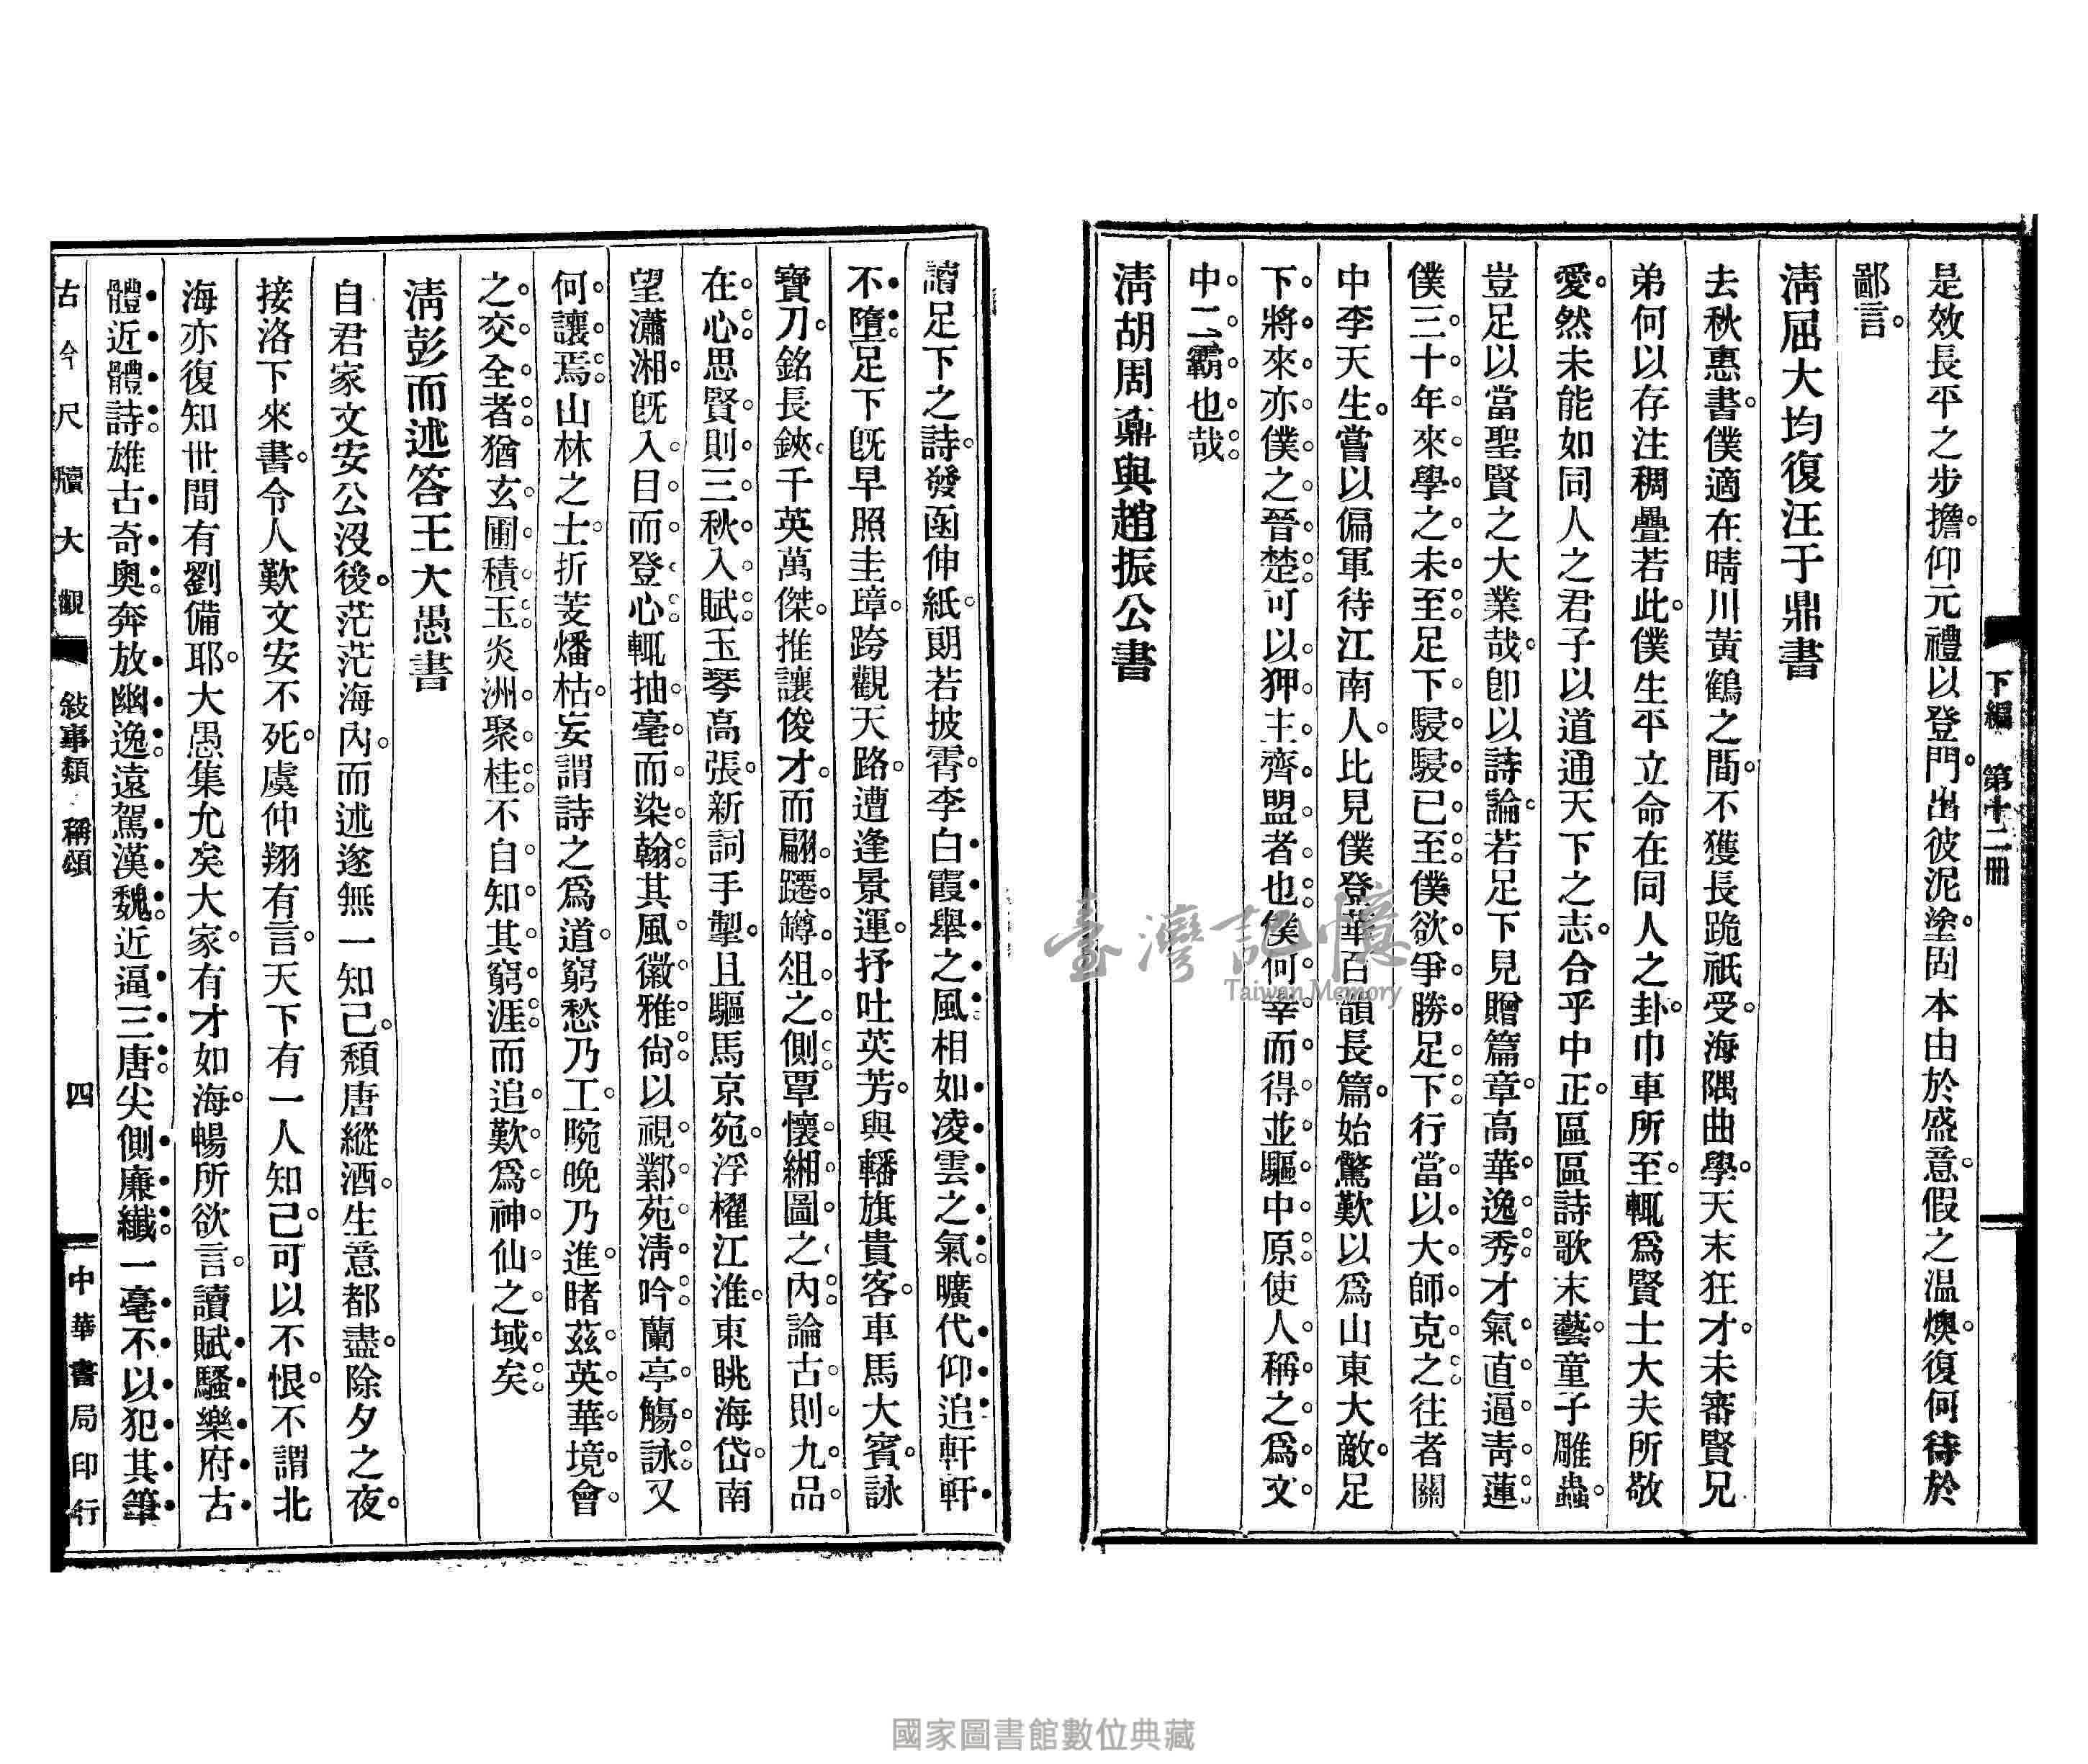 下編　第十二冊
是效長平之步擔仰元禮以登門出彼泥塗固本由於盛意假之温燠復何待於
鄙言
淸屈大均復汪于鼎書
去秋惠書僕適在晴川黃鶴之間不獲長跪祇受海隅曲學天末狂才未審賢兄
弟何以存注稠疊若此僕生平立命在同人之卦巾車所至輒爲賢士大夫所敬
愛然未能如同人之君子以道通天下之志合乎中正區區詩歌末藝童子雕蟲
豈足以當聖賢之大業哉卽以詩論若足下見贈篇章高華逸秀才氣直逼靑蓮
僕三十年來學之未至足下駸駸已至僕欲爭勝足下行當以大師克之往者關
中李天生嘗以偏軍待江南人比見僕登華百韻長篇始驚歎以爲山東大敵足
下將來亦僕之晉楚可以狎主齊盟者也僕何幸而得並驅中原使人稱之爲文
中二霸也哉
淸胡周鼒與趙振公書
讀足下之詩發函伸紙朗若披霄李白霞舉之風相如凌雲之氣曠代仰追軒軒
不墮足下旣早照圭璋跨觀天路遭逢景運抒吐英芳與轓旗貴客車馬大賓詠
寶刀銘長鋏千英萬傑推讓俊才而翩躚罇俎之側覃懷緗圖之內論古則九品
在心思賢則三秋入賦玉琴高張新詞手掣且驅馬京宛浮櫂江淮東眺海岱南
望瀟湘旣入目而登心輒抽毫而染翰其風徽雅尙以視鄴苑淸吟蘭亭觴詠又
何讓焉山林之士折芰燔枯妄謂詩之爲道窮愁乃工晼晚乃進睹茲英華境會
之交全者猶玄圃積玉炎洲聚桂不自知其窮涯而追歎爲神仙之域矣
淸彭而述答王大愚書
自君家文安公沒後茫茫海內而述遂無一知己頹唐縱酒生意都盡除夕之夜
接洛下來書令人歎文安不死虞仲翔有言天下有一人知己可以不恨不謂北
海亦復知世間有劉備耶大愚集允矣大家有才如海暢所欲言讀賦騷樂府古
體近體詩雄古奇奧奔放幽逸遠駕漢魏近逼三唐尖側廉纖一毫不以犯其筆
古今尺牘大觀　敍事類　稱頌　四　中華書局印行
臺灣記憶
Taiwan Memory
國家圖書館數位典藏